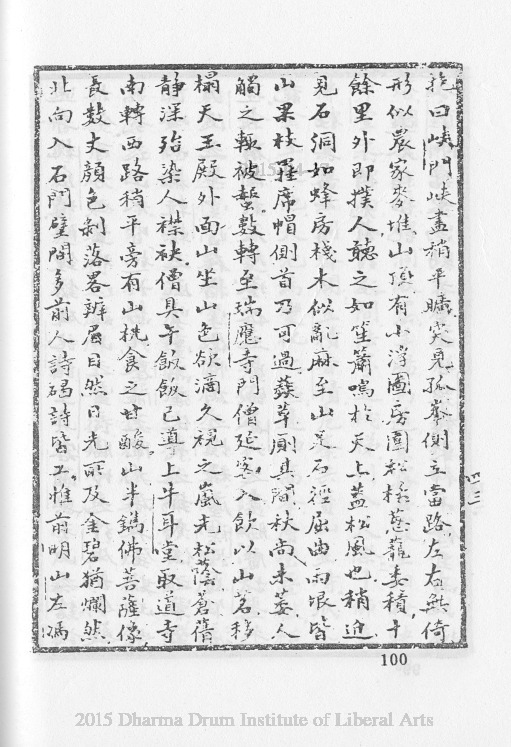 抱曰峽門峽盡稍平曠突見孤峯側立當路左右無倚
形似農家麥堆山頂有小浮圖房圍松栝蔥蘢委積十
餘里外即撲人聽之如笙簫鳴於天上蓋松風也稍近
見石洞如蜂房棧木似亂麻至山足石徑屈曲兩垠皆
山果枝羅席帽側首乃可過蕤草廁其間秋尚未萎人
觸之輒被螫數轉至瑞應寺門僧延客入飲以山茗移
榻天王殿外面山坐山色欲滴久視之嵐光松蔭蒼蒨
靜深殆染人襟袂僧具午飯飯已導上牛耳堂取道寺
南轉西路稍平旁有山桃食之甘酸山半鐫佛菩薩像
長數丈顏色剝落畧辨眉目然日光所及金碧猶爛然
北向入石門壁間多前人詩碣詩皆工惟前明山左馮
四三
100
2015 Dharma Drum Institute of Liberal Arts